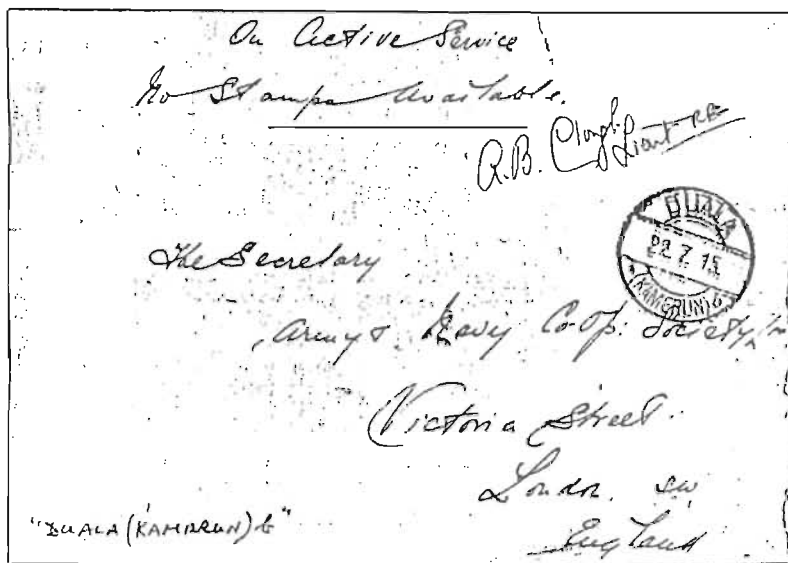 On Active Service
No Stamps Available.
A.B. Clough
Lieut RE
DUALA
22.7.15
(KAMERUN)
The Secretary
Army & Navy Co-Op: Society
Victoria Street.
London. SW
England
"DUALA (KAMERUN) b"